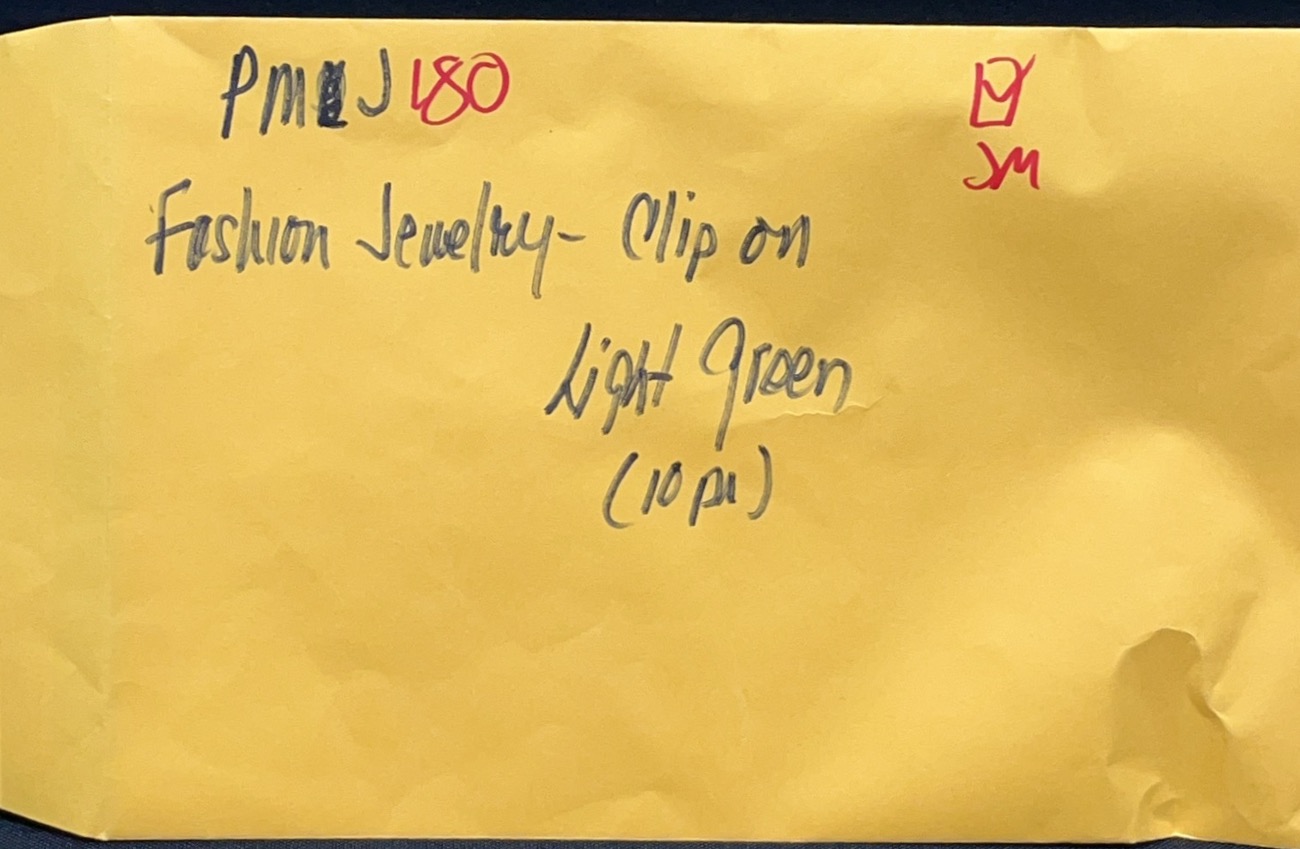 PM J 180
JM
Fashion Jewelry- Clip on
Light Green
(10 pr)